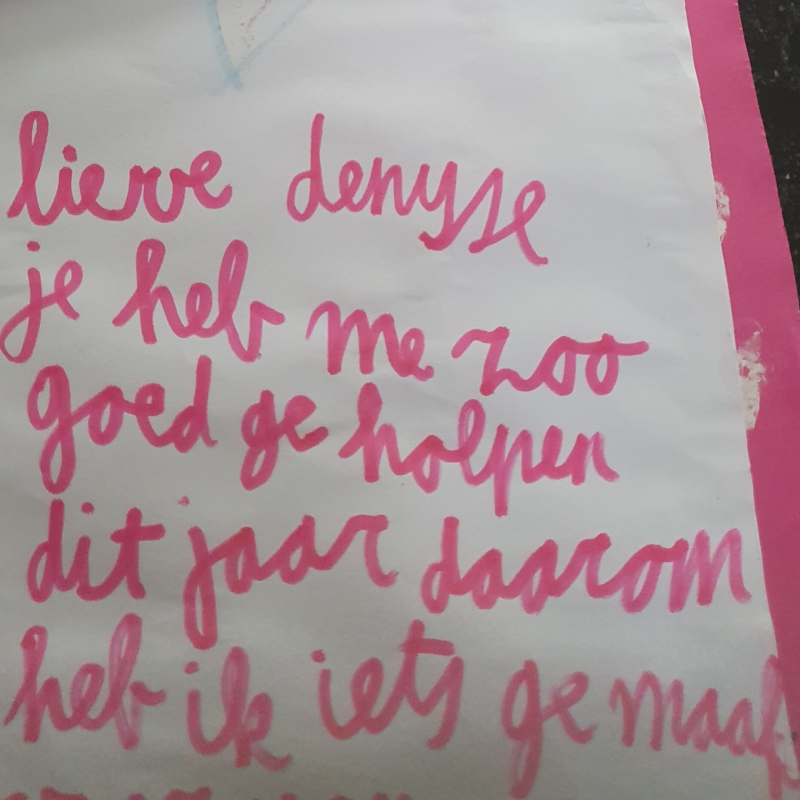 lieve denysse
je heb me zoo
goed ge holpen
dit jaar daarom
heb ik iets ge maak